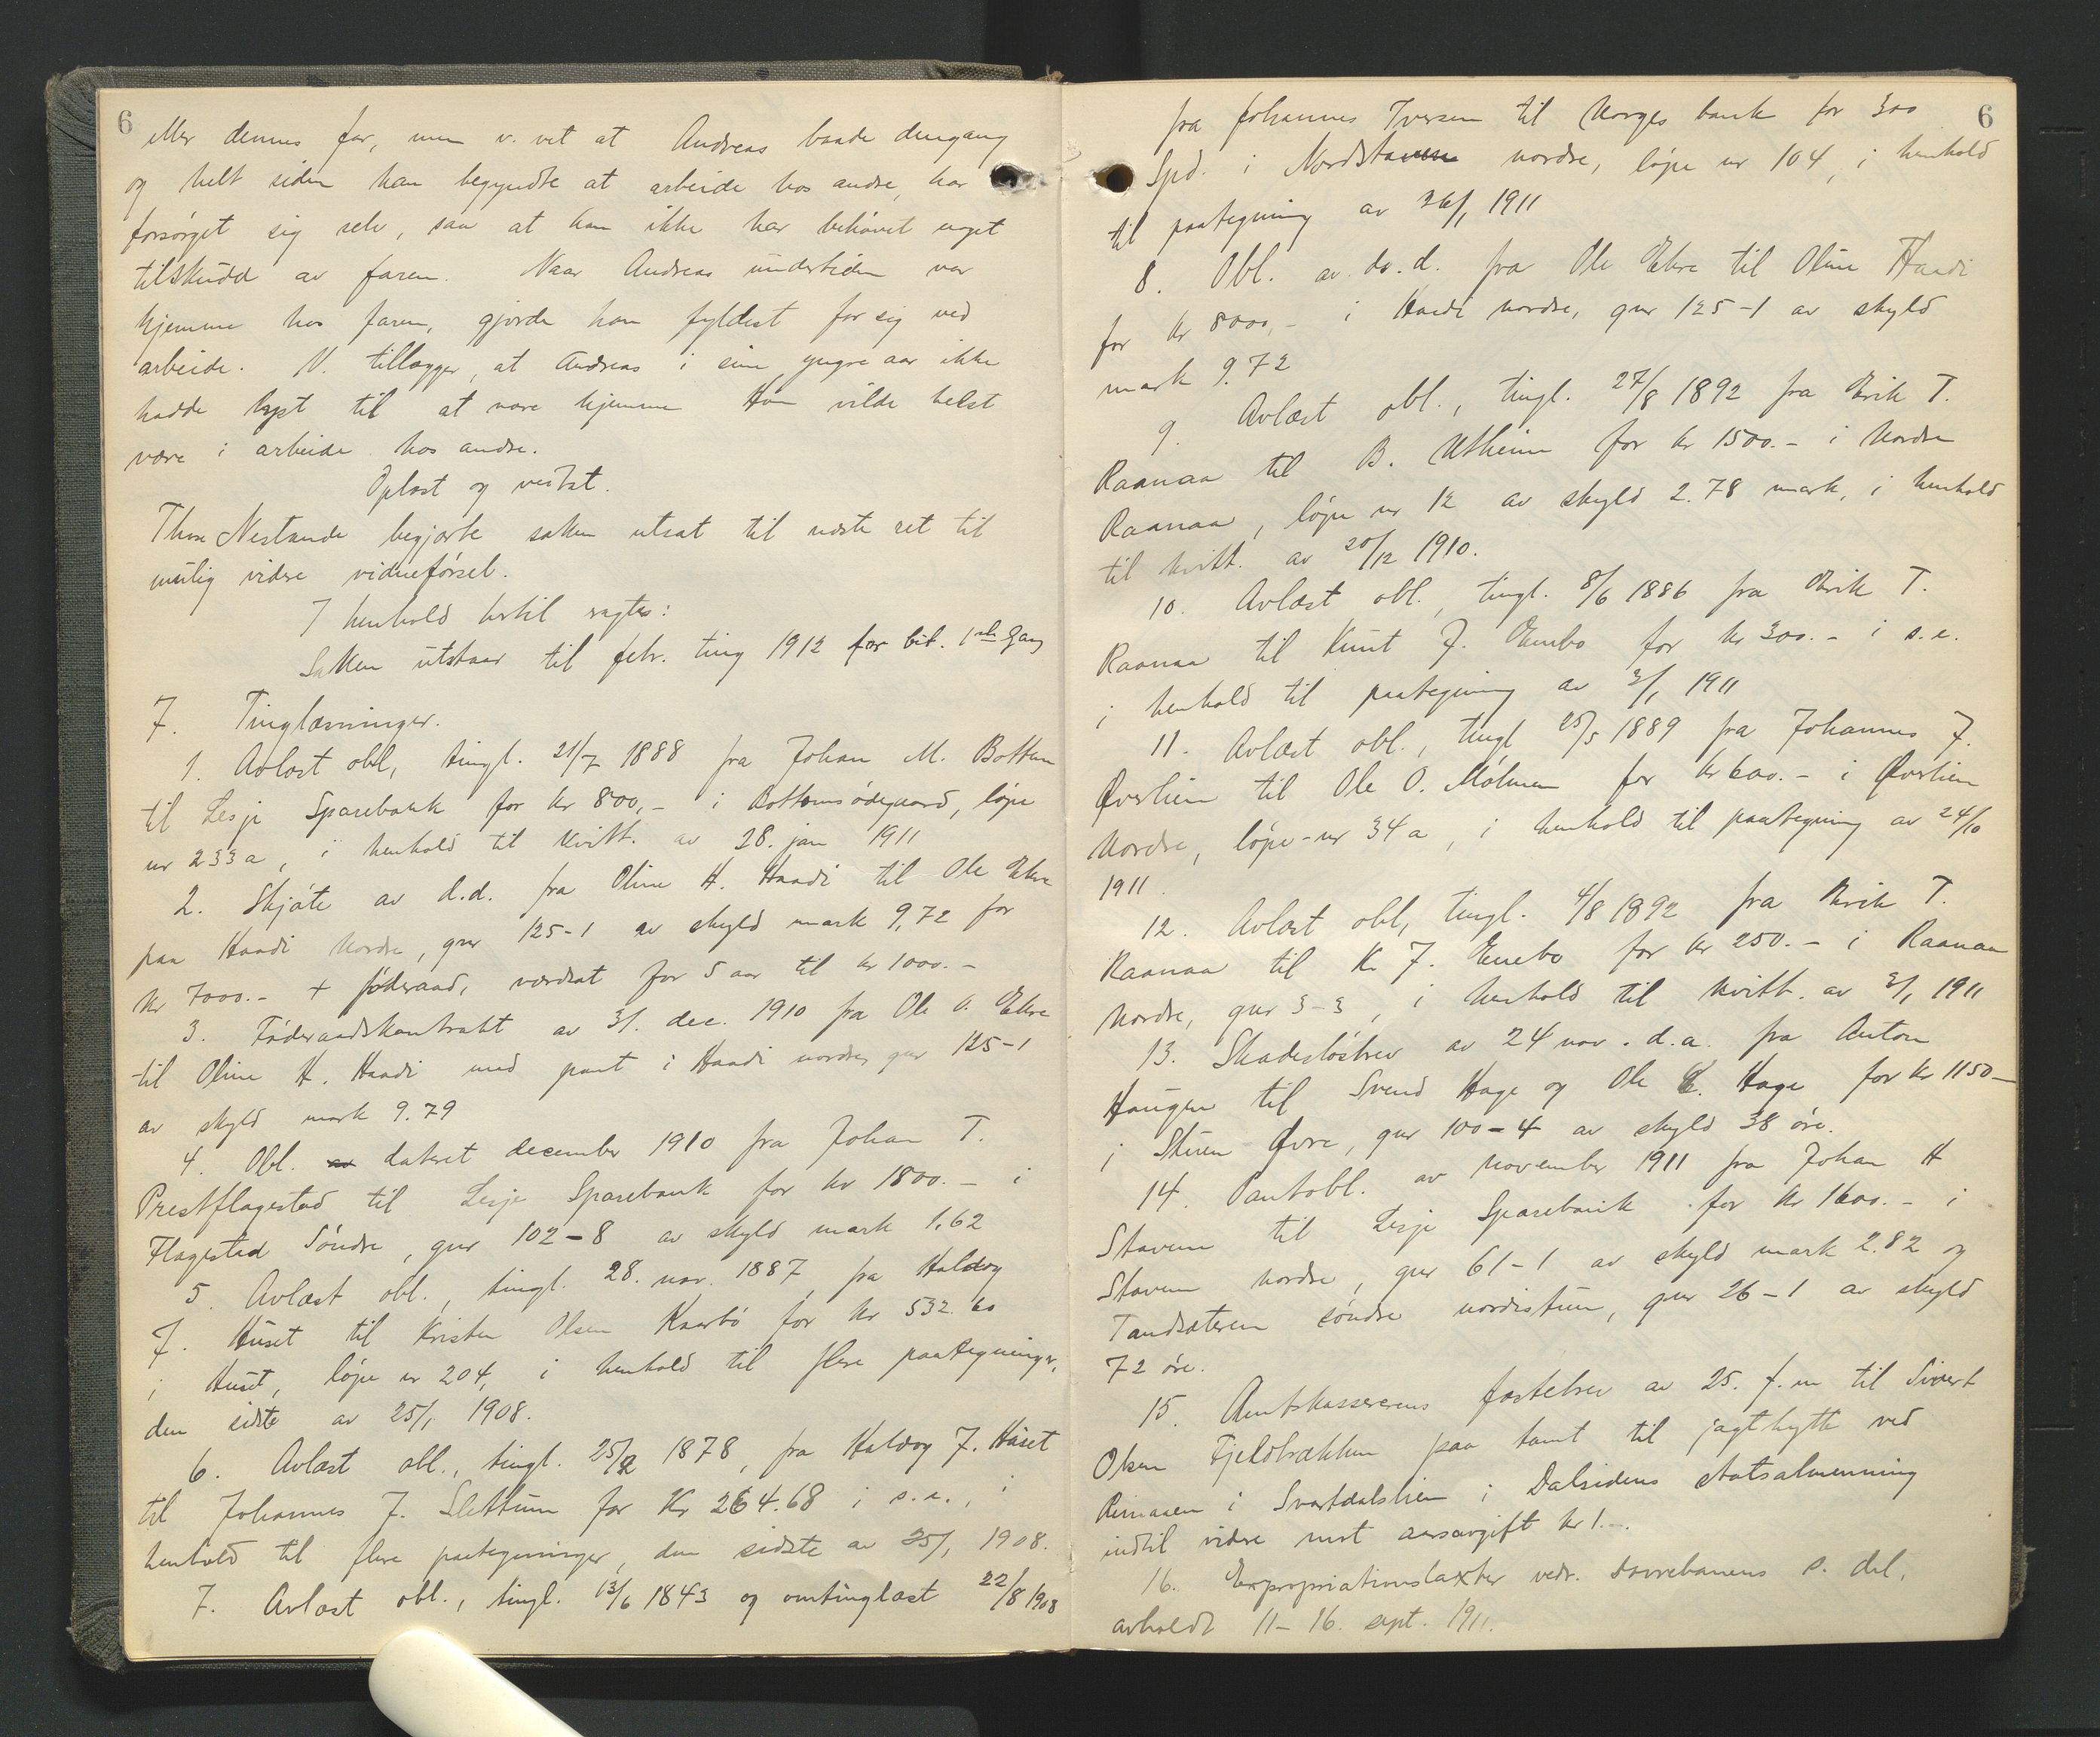 6
eller dennes far, men v. vet at Andreas baade dengang
og helt siden han begyndte at arbeide hos andre, har
forsørget sig selv, saa at han ikke har behøvet noget
tilskudd av faren. Naar Andreas undertiden var
hjemme hos faren, gjorde han fyldest for sig ved
arbeide. V. tillægger, at Andreas i sine yngre aar ikke
hadde lyst til at være hjemme Han vilde helst
være i arbeide hos andre.
Oplæst og vedtat.
Thor Nestande begjærte saken utsat til næste ret til
mulig videre vidneførsel.
I henhold hertil sagtes:
Saken utstaar til febr. ting 1912 for bit. 1ste Gang
7. Tinglæsninger.
1. Avlæst obl, tingl. 21/7 1888 fra Johan M. Bottum
til Lesje Sparebank for kr 800,- i Bottumsødegaard, løpe
nr 233a, i henhold til kvitt. av 28. jan 1911
2. Skjøte av d.d. fra Oline H. Haadi til Ole Ekre
paa Haadi Nordre, gnr 125-1 av skyld mark 9,72 for
kr 7000.- + føderaad, værdsat for 5 aar til kr 1000.-
3. Føderaadskontrakt av 31. dec. 1910 fra Ole O. Ekre
til Oline H. Haadi med pant i Haadi nordre, gnr 125-1
av skyld mark 9.79
4. Obl. av datert december 1910 fra Johan T.
Prestflagestad til Lesje Sparebank for kr 1800.- i
Flagestad Søndre, gnr 102-8 av skyld mark 1,62
5. Avlæst obl., tingl. 28. nov. 1887, fra Haldog
J. Huset til Kristen Olsen Kaarbø for kr 532.60
i Huset, løpe nr 204, i henhold til flere paategninger,
den sidste av 25/1 1908.
6. Avlæst obl., tingl. 25/2 1878, fra Haldog J. Huset
til Johannes J. Slettum for Kr 264.68 i s.e., i
henhold til flere paategninger, den sidste av 25/1 1908.
7. Avlæst obl., tingl. 13/6 1843 og omtinglæst 22/8 1908
6
fra Johannes Iversen til Norges bank for 300
Spd. i Nordstavem nordre, løpe nr 104, i henhold
til paategning av 26/1 1911
8. Obl. av do. d. fra Ole Ekre til Oline Haadi
for kr 8000,- i Haadi nordre, gnr 125-1 av skyld
mark 9.72
9. Avlæst obl., tingl. 27/8 1892 fra Erik T.
Raanaa til B. Utheim for kr 1500.- i Nordre
Raanaa, løpe nr 12 av skyld 2.78 mark, i henhold
til kvitt. av 20/12 1910.
10. Avlæst obl., tingl. 8/6 1886 fra Erik T.
Raanaa til Knut J. Enebo for kr 300.- i s.e.
i henhold til paategning av 3/1 1911
11. Avlæst obl., tingl 25/5 1889 fra Johannes J.
Øverlien til Ole O. Mølmen for kr 600.- i Øverlien
Nordre, løpe-nr 34a, i henhold til paategning av 24/10
1911.
12. Avlæst obl, tingl. 4/8 1892 fra Erik T.
Raanaa til K. J. Enebo for kr 250.- i Raanaa
Nordre, gnr 3-3, i henhold til kvitt. av 3/1 1911
13. Skadesløsbrev av 24 nov. d.a. fra Anton
Haugen til Svend Hage og Ole E. Hage for kr 1150-
i Stuen Øvre, gnr 100-4 av skyld 38 øre.
14. Pantobl. av november 1911 fra Johan H
Stavem til Lesje Sparebank for kr 1600.- i
Stavem Nordre, gnr 61-1 av skyld mark 2.82 og
Tandsæteren søndre nordistuen, gnr 26-1 av skyld
72 øre.
15. Amtskassererens fæstebrev av 25. f.m til Sivert
Olsen Fjeldbækken paa tomt til jagthytte ved
i Svartdalslien i Dalsidens statsalmenning
indtil videre mot aarsavgift kr 1.-.
16. Expropriationstaxter vedr. Dovrebanens s. del,
avholdt 11-16. sept. 1911.